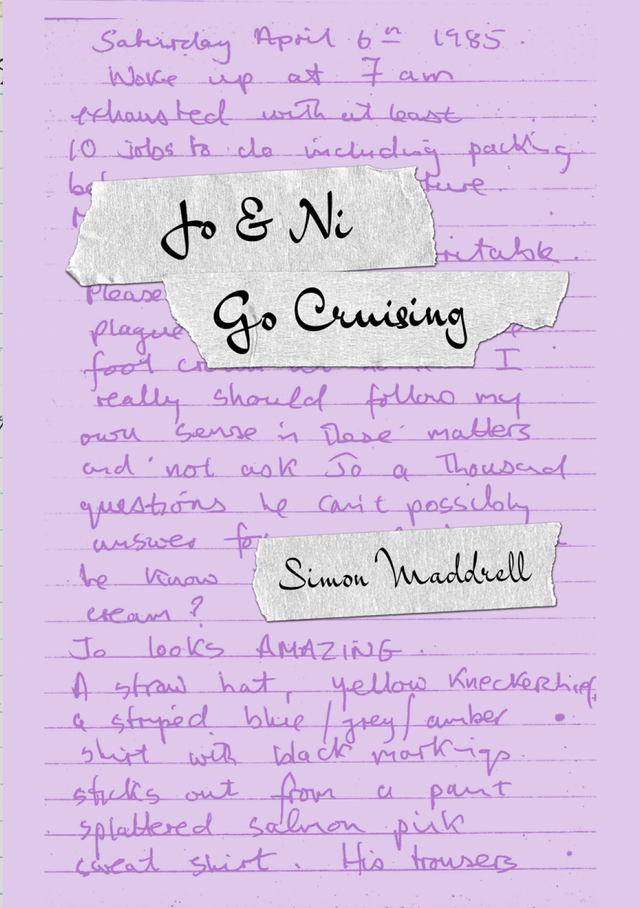 Saturday April 6th 1985.
Woke up at 7am
exhausted with at least
10 jobs to do including packing
Jo & Ni
ritable.
Please
Go Cruising
plague
foot I
really should follow my
own sense in these matters
and not ask Jo a Thousand
questions he can't possibly
answer
he know
Simon Maddrell
cream?
Jo looks AMAZING.
A straw hat, yellow Kneckerhief,
a striped blue/grey/amber
shirt with black markings
sticks out from a paint
splattered salmon pink
sweat shirt. His trousers